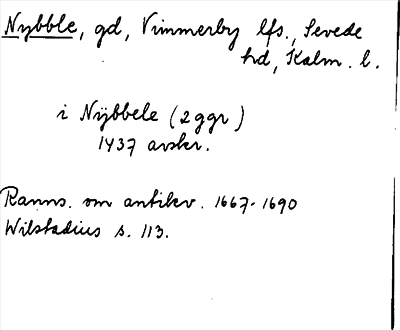 Nybble, gd, Vimmerby lfs., Sevede
hd, Kalm. l.
i Nÿbbele (2 ggr)
1437 avskr.
Ranns. om antikv. 1667-1690
Wilstadius s. 113.